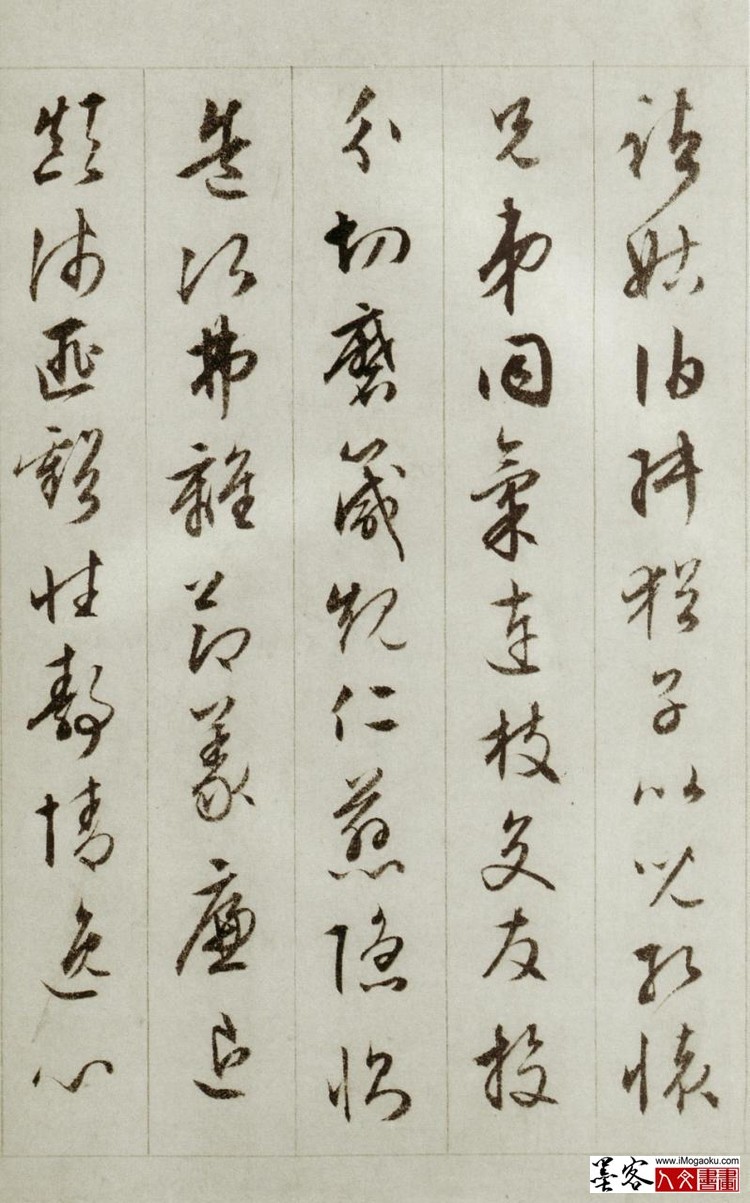 諸姑伯叔猶子比兒孔懷
兄弟同氣連枝交友投
分切磨箴規仁慈隱惻
造次弗離節義廉退
顛沛匪虧性靜情逸心
www.iMogaoku.com
墨客人文書畫